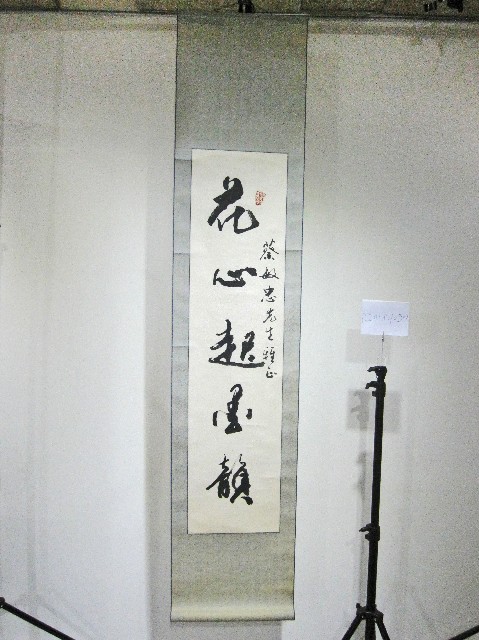 蔡敏忠先生雅正
花心起墨韻